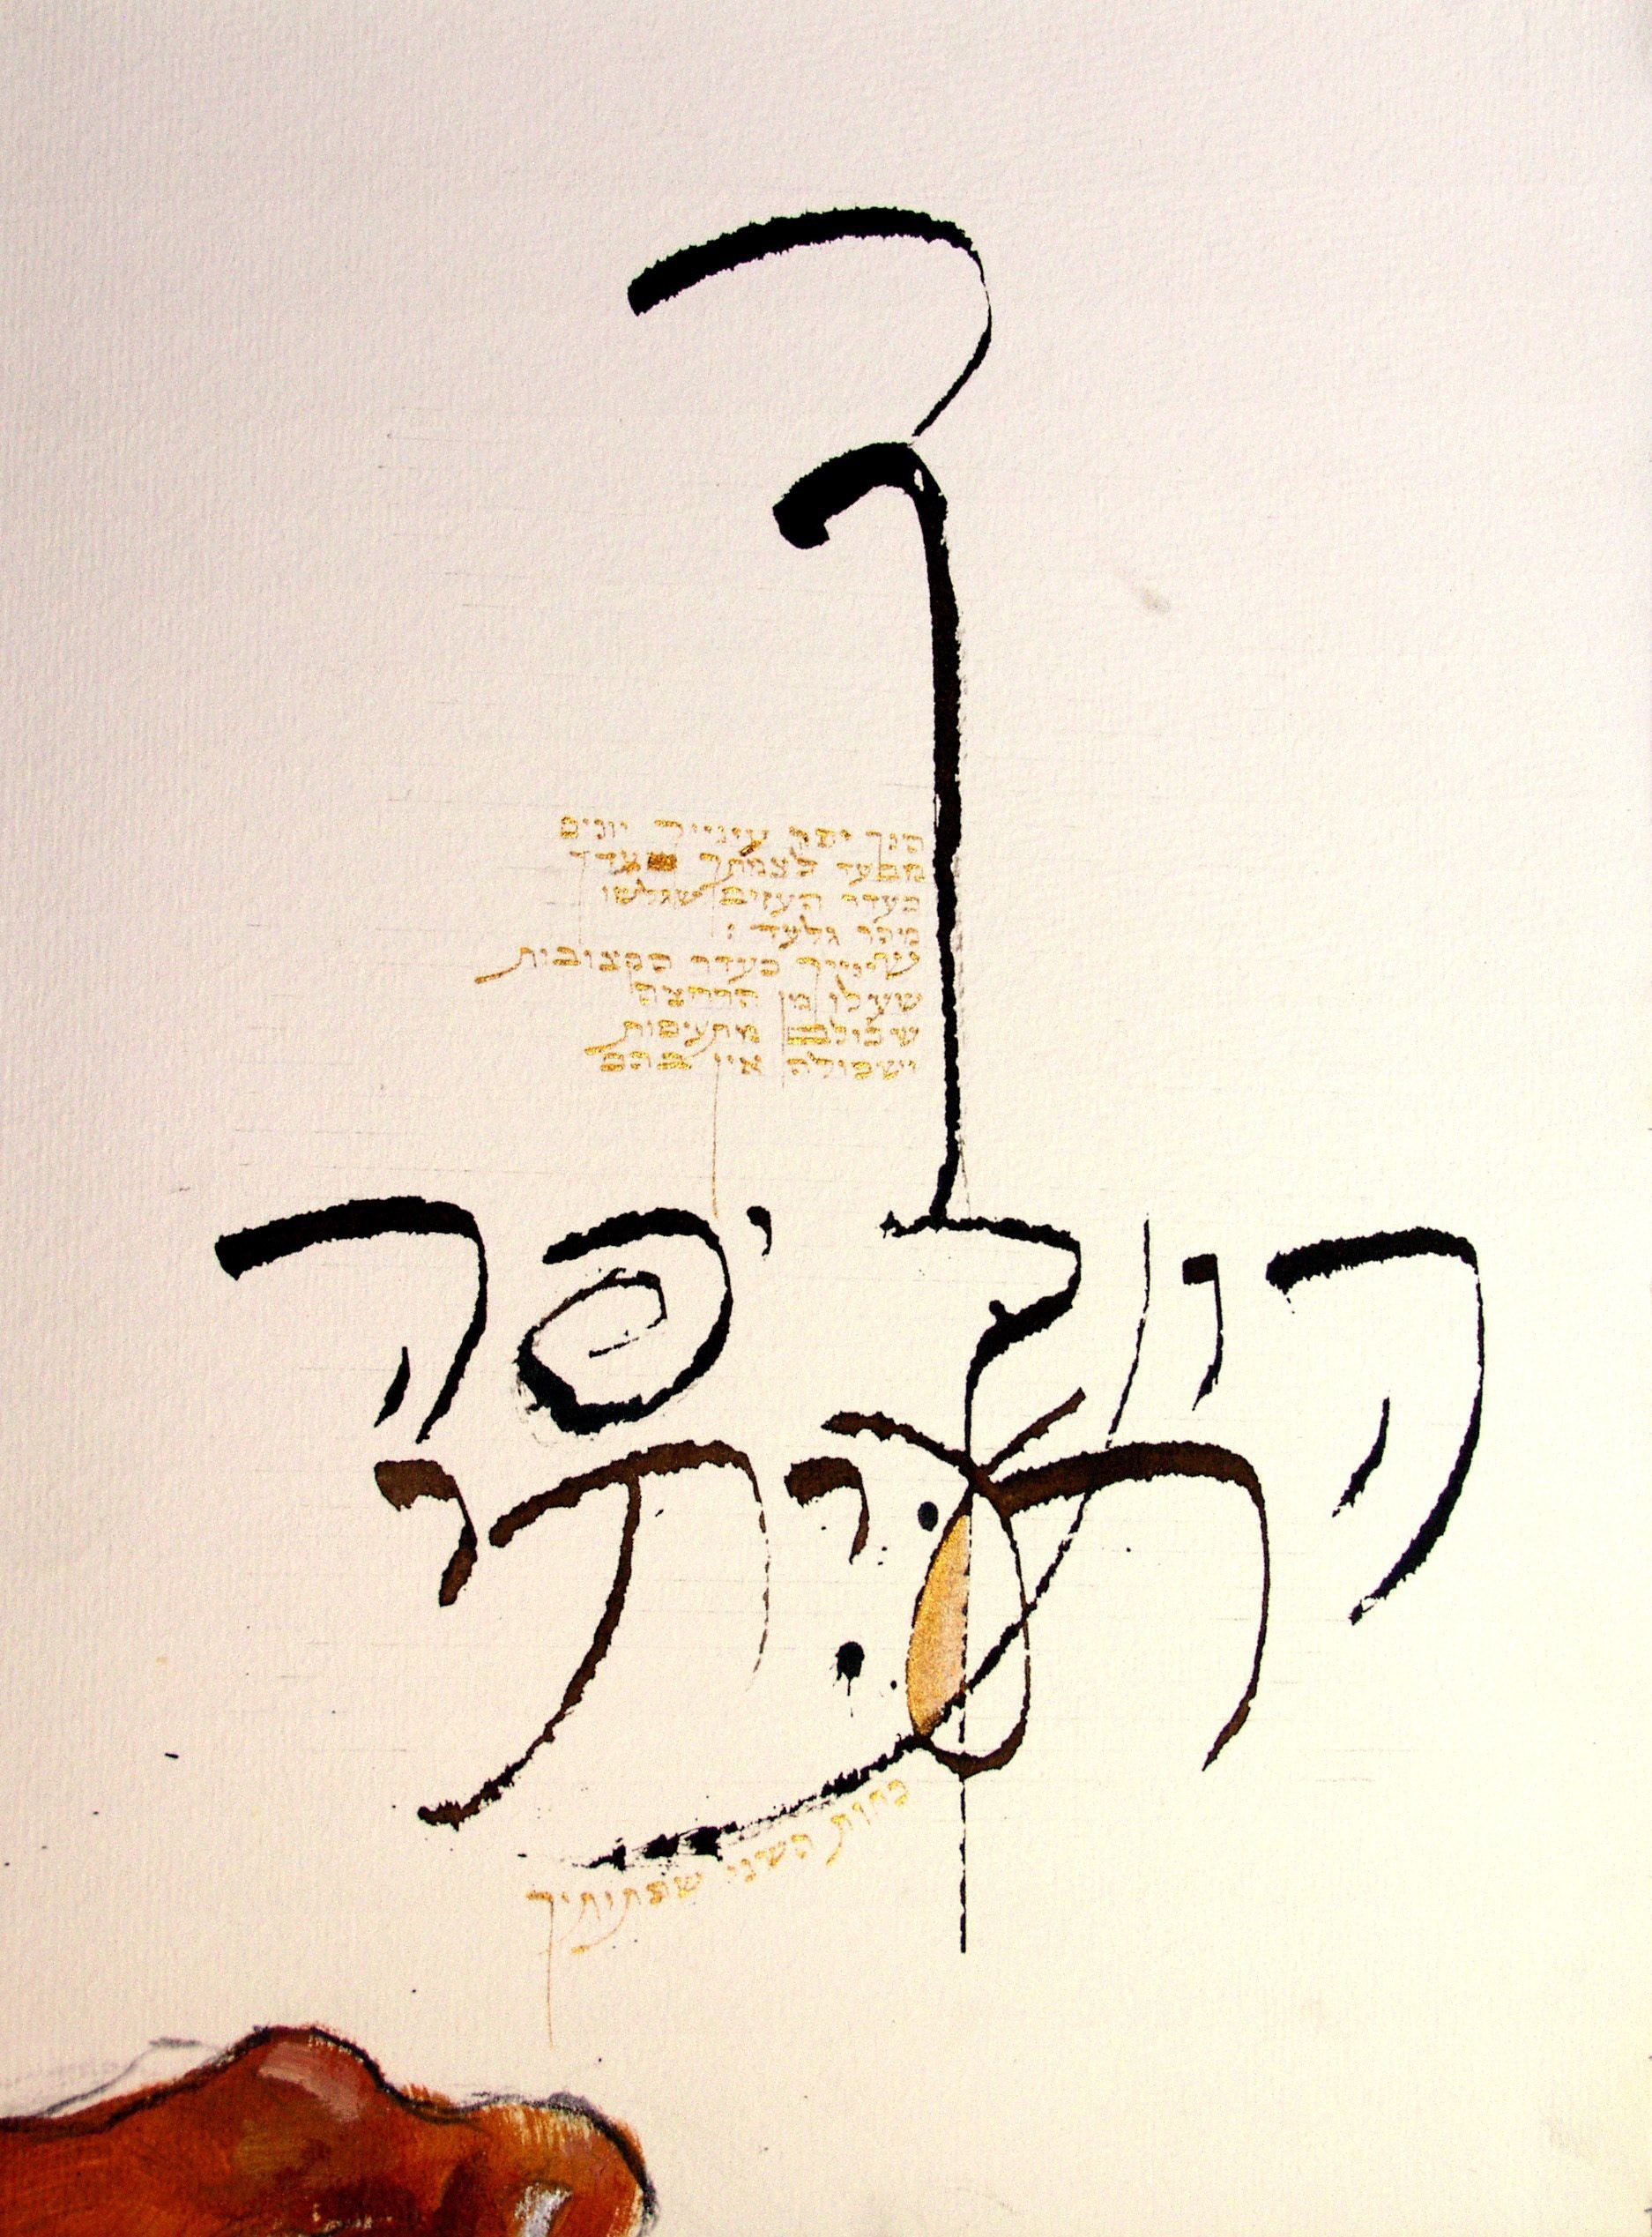 הנך יפה
רעיתי
הנך יפה עינייך יונים
מבעד לצמתך שערך
כעדר העזים שגלשו
מהר גלעד :
שינייך כעדר הקצובות
שעלו מן הרחצה
שכולם מתעימות
ושכולה אין בהם
כחוט השני שפתותיך